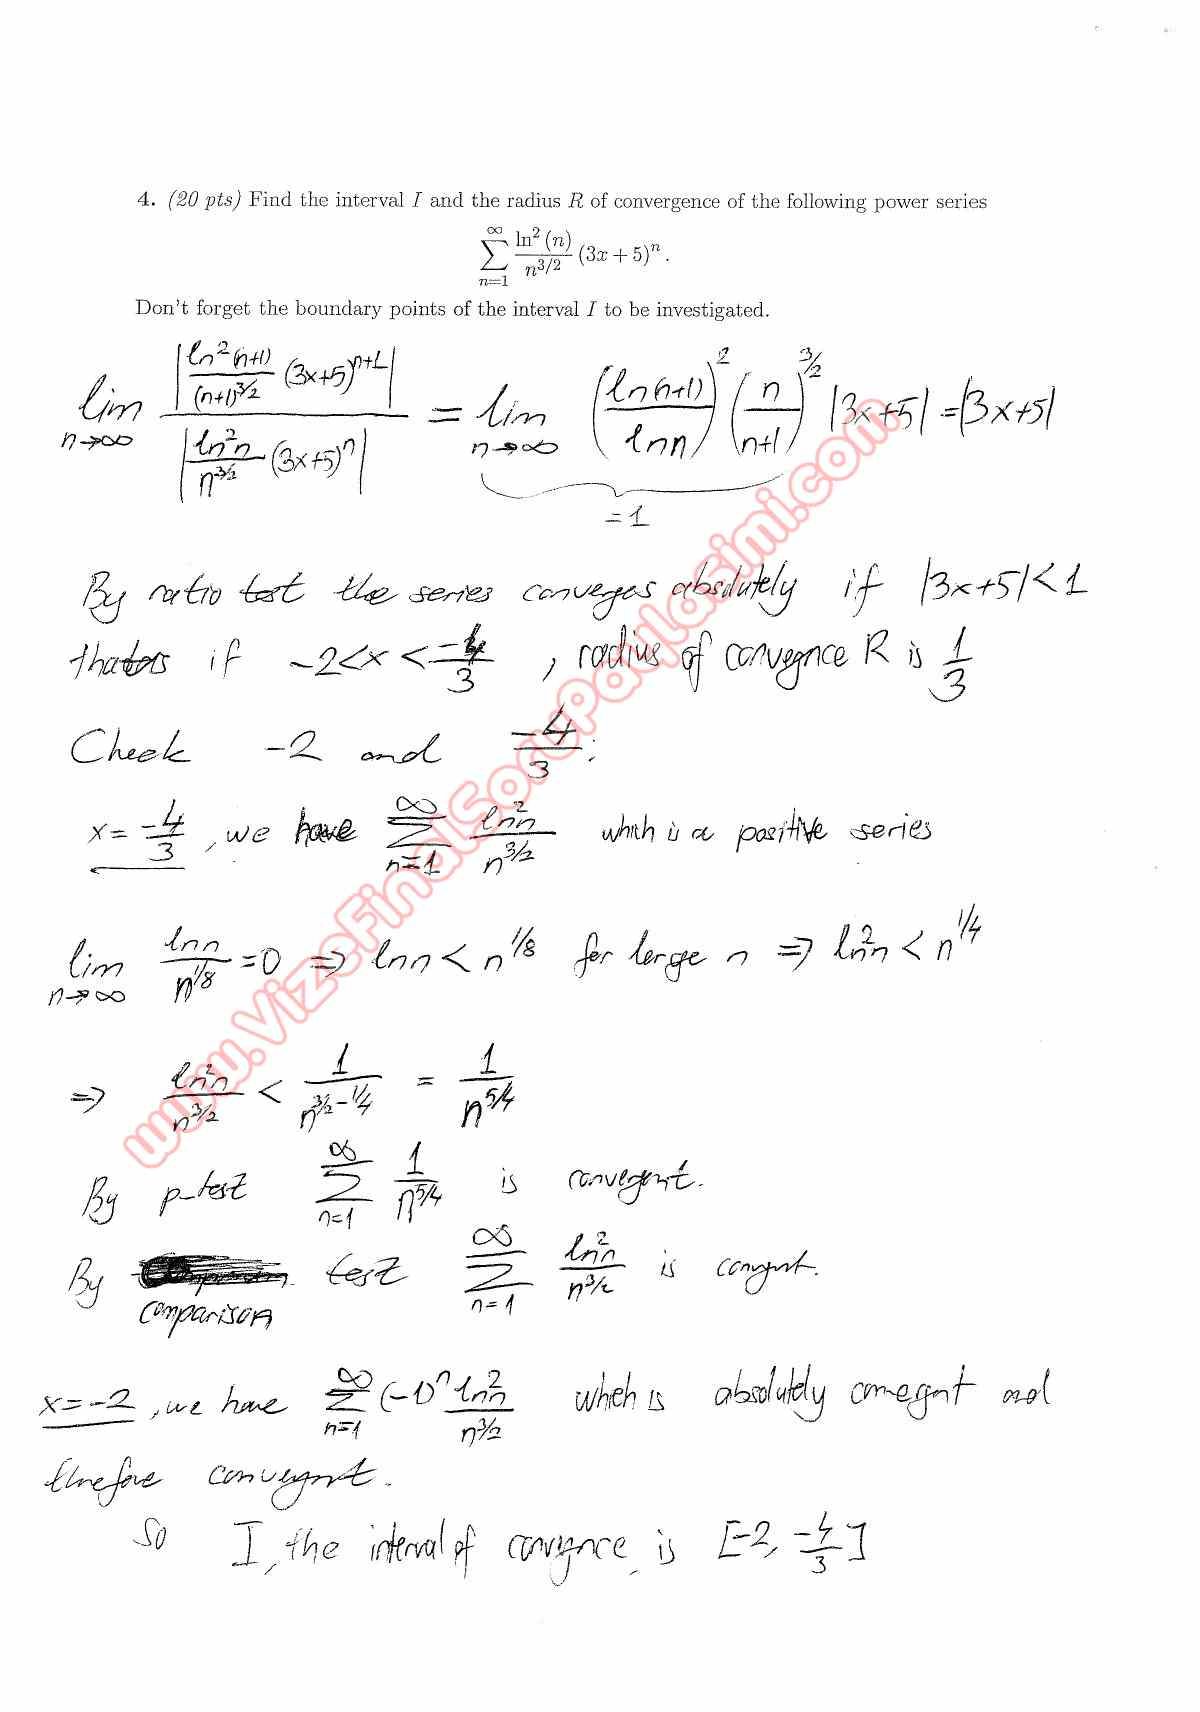 4. (20 pts) Find the interval I and the radius R of convergence of the following power series
∑_{n=1}^{∞} ln²(n)/n^{3/2} (3x + 5)^n.
Don't forget the boundary points of the interval I to be investigated.
lim_{n→∞} |ln²(n+1)/(n+1)^{3/2} (3x+5)^{n+1}| / |ln²n/n^{3/2} (3x+5)^n| = lim_{n→∞} (ln(n+1)/ln n)² (n/n+1)^{3/2} |3x+5| = |3x+5|
= 1
By ratio test the series converges absolutely if |3x+5| < 1
that is if -2 < x < -4/3 , radius of convergence R is 1/3
Check -2 and -4/3 :
x = -4/3 , we have ∑_{n=1}^{∞} ln²n/n^{3/2} which is a positive series
lim_{n→∞} ln n/n^{1/8} = 0 ⇒ ln n < n^{1/8} for large n ⇒ ln²n < n^{1/4}
⇒ ln²n/n^{3/2} < 1/n^{3/2-1/4} = 1/n^{5/4}
By p-test ∑_{n=1}^{∞} 1/n^{5/4} is convergent.
By comparison test ∑_{n=1}^{∞} ln²n/n^{3/2} is convergent.
x = -2 , we have ∑_{n=1}^{∞} (-1)^n ln²n/n^{3/2} which is absolutely convergent and
therefore convergent.
So I, the interval of convergence, is [-2, -4/3]
www.VizeFinalSoruPaylasimi.com